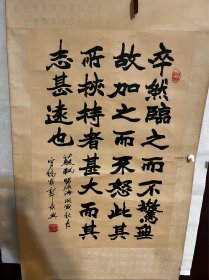 卒然臨之而不驚無
故加之而不怒此其
所挾持者甚大而其
志甚遠也
蘇軾